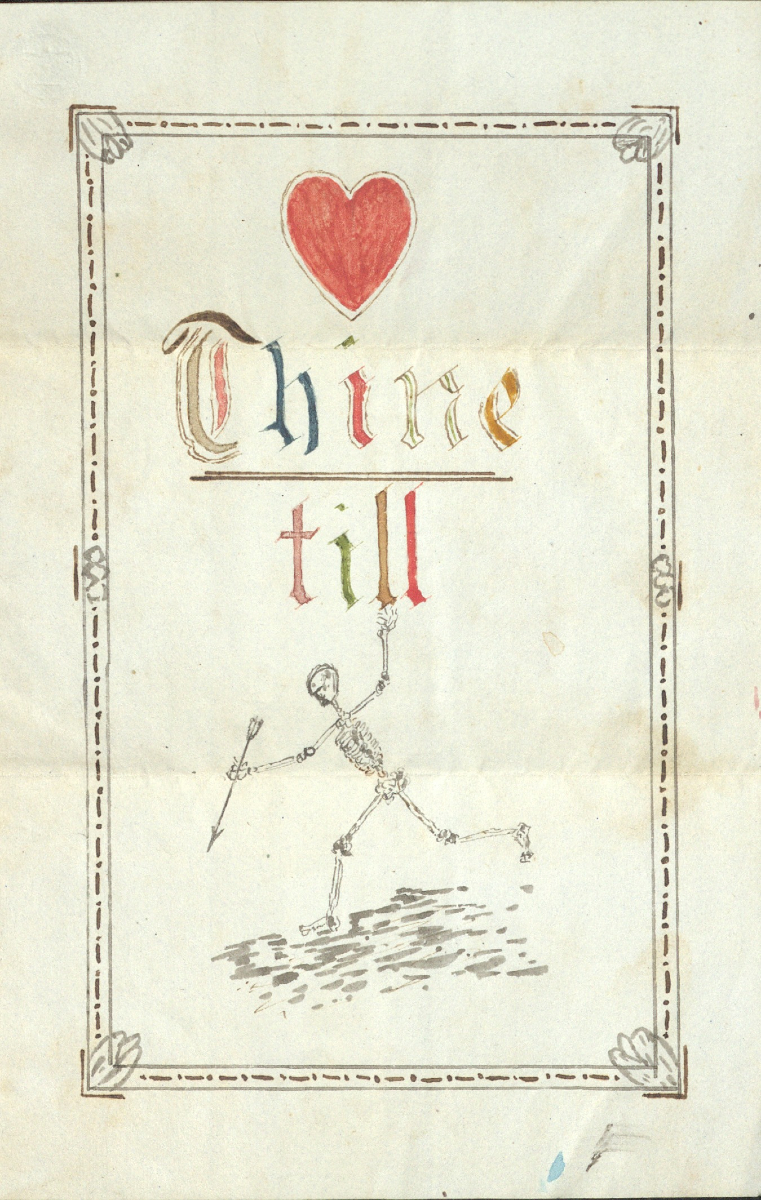 Thine
till